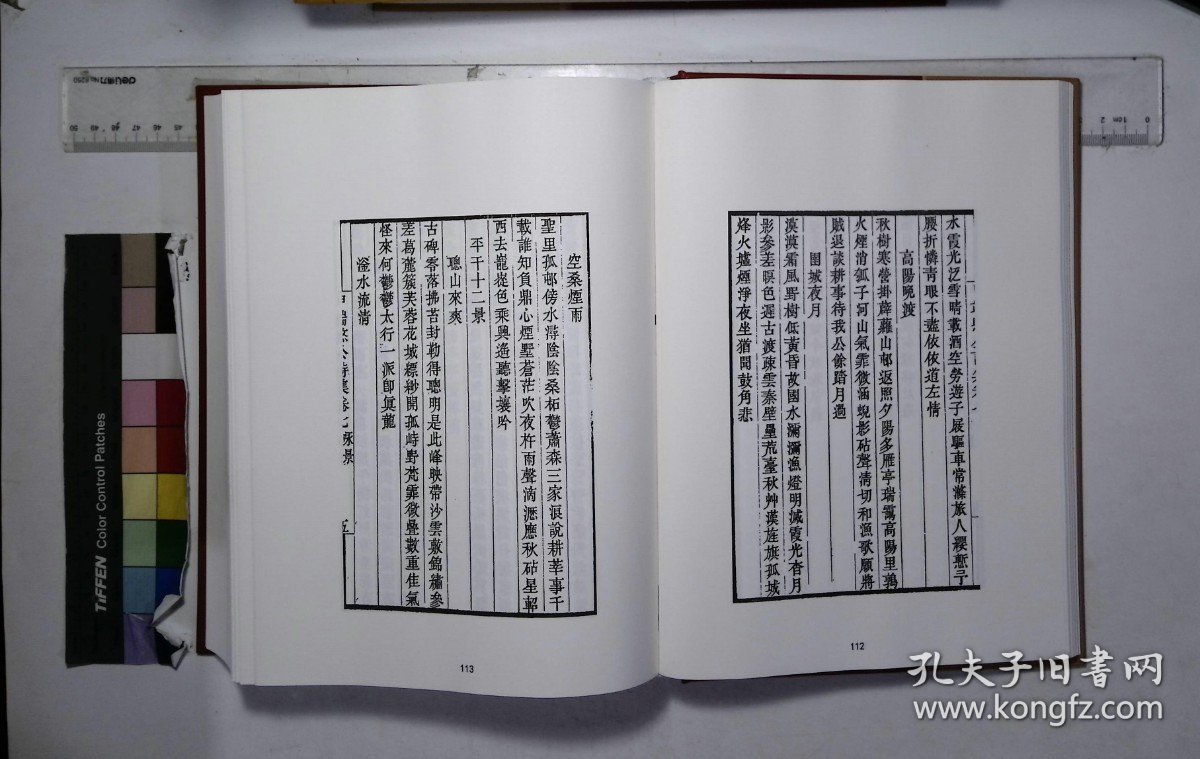 水霞光泛雪晴載酒空勞遊子展驅車常滯旅人纓慙予
腰折憐青眼不盡依依道左情
高陽晚渡
秋樹寒螢掛薜蘿山邨返照夕陽多雁亭瑞靄高陽里鶏
火煙消瓠子河山氣霏微涵蜺影砧聲淸切和漁歌願將
賊退談耕事待我公餘踏月過
圉城夜月
漠漠霜風野樹低黃昏故國水瀰瀰漁燈明滅霞光有月
影參差暝色迟古渡疎雲秦壁壘荒臺秋艸漢旌旗孤城
烽火墟煙淨夜坐猶聞鼓角悲
112
空桑煙雨
聖里孤邨傍水潯陰陰桑柘鬱蕭森三家人說耕莘事千
載誰知負鼎心煙墅蒼茫吹夜杵雨聲滴瀝應秋砧星郵
西去巃嵸色乘興遙聽擊壤吟
平干十二景
聰山來爽
古碑零落拂苔封勒得聰明是此峰映帶沙雲數錦繡參
差葛藟簇芙蓉花城縹緲開孤峙野梵霏微疊數重佳氣
怪來何鬱鬱太行一派卽眞龍
滏水流清
113
TIFFEN Color Control Patches
deli得力 No.6250
孔夫子旧书网
www.kongfz.com